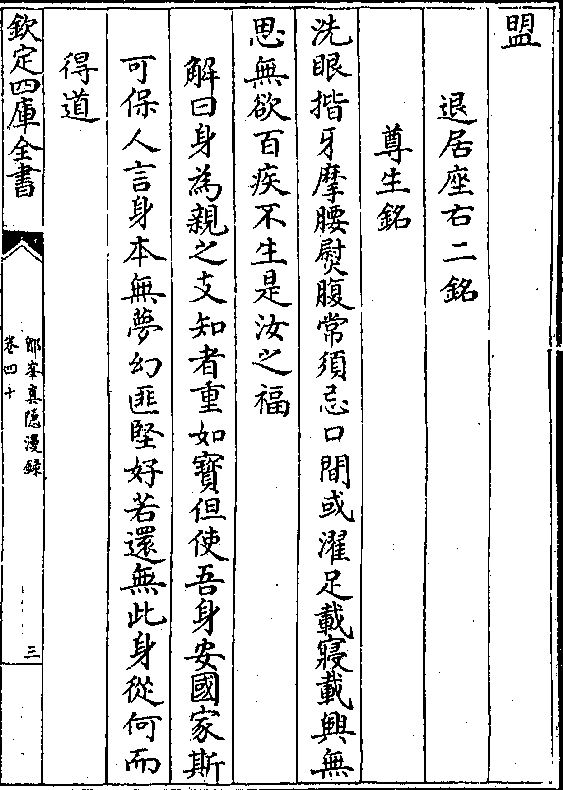 盟
退居座右二銘
尊生銘
洗眼揩牙摩腰熨腹常須忌口間或濯足載寢載興無
思無欲百疾不生是汝之福
解曰身為親之支知者重如寳但使吾身安國家斯
可保人言身本無夢幻匪堅好若還無此身從何而
得道
欽定四庫全書
鄮峯真隠漫録
卷四十
三